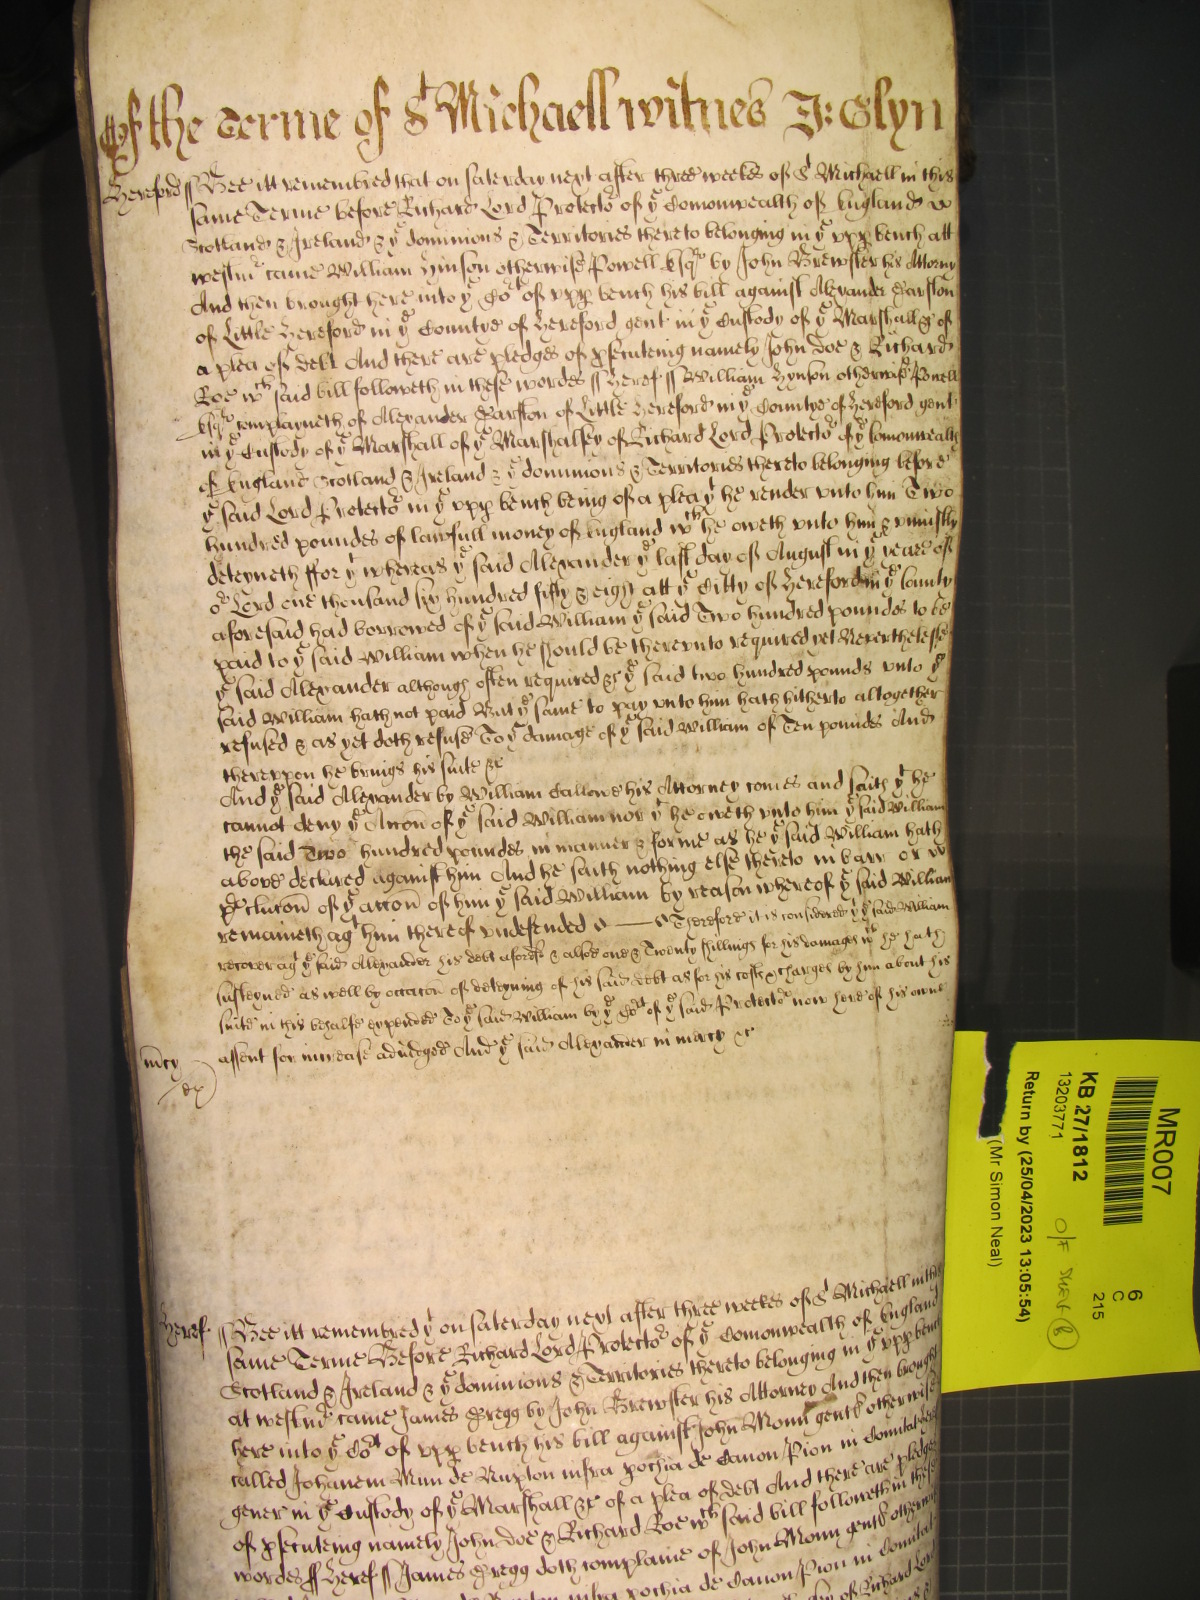 Of the Terme of St Michaell witnes J: Glyn
Hereford ss Bee itt remembred that on Saterday next after three weekes of St Michaell in this
same Terme before Richard Lord Protector of ye Comonwealth of England
Scotland & Ireland & ye dominions & Territories thereto belonging in ye vpp bench att
westmr came William Hinson otherwise Powell Esqr by John Brewster his Attorny
And then brought here into ye Cort of vpp bench his bill against Alexander Garston
of Little Hereford in ye Countye of Hereford gent in ye Custody of ye Marshall &c of
a plea of debt And there are pledges of psecuteing namely John Doe & Richard
Roe wch said bill followeth in these wordes ss Heref ss William Hynson otherwise Powell
Esqr complayneth of Alexander Garston of Little Hereford in ye Countye of Hereford gent
in ye Custody of ye Marshall of ye Marshalsey of Richard Lord Protector of ye Comonwealth
of England Scotland & Ireland & ye dominions & Territories thereto belonging before
ye said Lord Protector in ye vpp bench being of a plea yt he render vnto him Two
hundred poundes of lawfull money of England wch he oweth vnto him & vniustly
deteyneth ffor yt whereas ye said Alexander ye last day of August in ye yeare of
or Lord one thousand six hundred fifty & eight att ye Citty of Hereford in ye County
aforesaid had borrowed of ye said William ye said Two hundred poundes to be
paid to ye said William when he should be therevnto required yet Neverthelesse
ye said Alexander although often required &c ye said two hundred pounds vnto ye
said William hath not paid But ye same to pay vnto him hath hitherto altogether
refused & as yet doth refuse To ye damage of ye said William of Ten poundes And
therevpon he brings his suite &c
And ye said Alexander by William Callowe his Attorney comes and saith yt he
cannot deny ye Accon of ye said William nor yt he oweth vnto him ye said William
the said Two hundred poundes in manner & forme as he ye said William hath
above declared against him And he saith nothing else thereto in barr or
preclucon of ye accon of him ye said William by reason whereof ye said William
remaineth agt him thereof vndefended Therefore it is considered yt ye said William
recover agt ye said Alexander his debt aforesd & alsoe one & Twenty shillings for his damages wch he hath
susteyned as well by occacon of deteyning of his said debt as for his costs & charges by him about his
suite in this behalfe expended To ye said William by ye Cort of ye said Protector now here of his owne
assent for increase adiudged And ye said Alexander in marcy &c
mcy
Heref ss Bee itt remembred yt on Saterday next after three weekes of St Michaell in this
same Terme Before Richard Lord Protector of ye Comonwealth of England
Scotland & Ireland & ye dominions & Territories thereto belonging in ye vpp bench
at westmr came James Gregg by John Brewster his Attorney And then brought
here into ye Cort of vpp bench his bill against John Monn gent otherwise
called Johanem Mun de Nupton infra pochia de Canon Pion in Comitat
gener in ye Custody of ye Marshall &c of a plea of debt And there are pledges
of psecuteing namely John Doe & Richard Roe wch said bill followeth in these
wordes ss Heref ss James Gregg doth complaine of John Monn gent otherwise
infra pochia de Canon Pion in Comitat
of Richard Lord
MR007
6
C
215
KB 27/1812
13203771
O/F
Return by (25/04/2023 13:05:54)
(Mr Simon Neal)